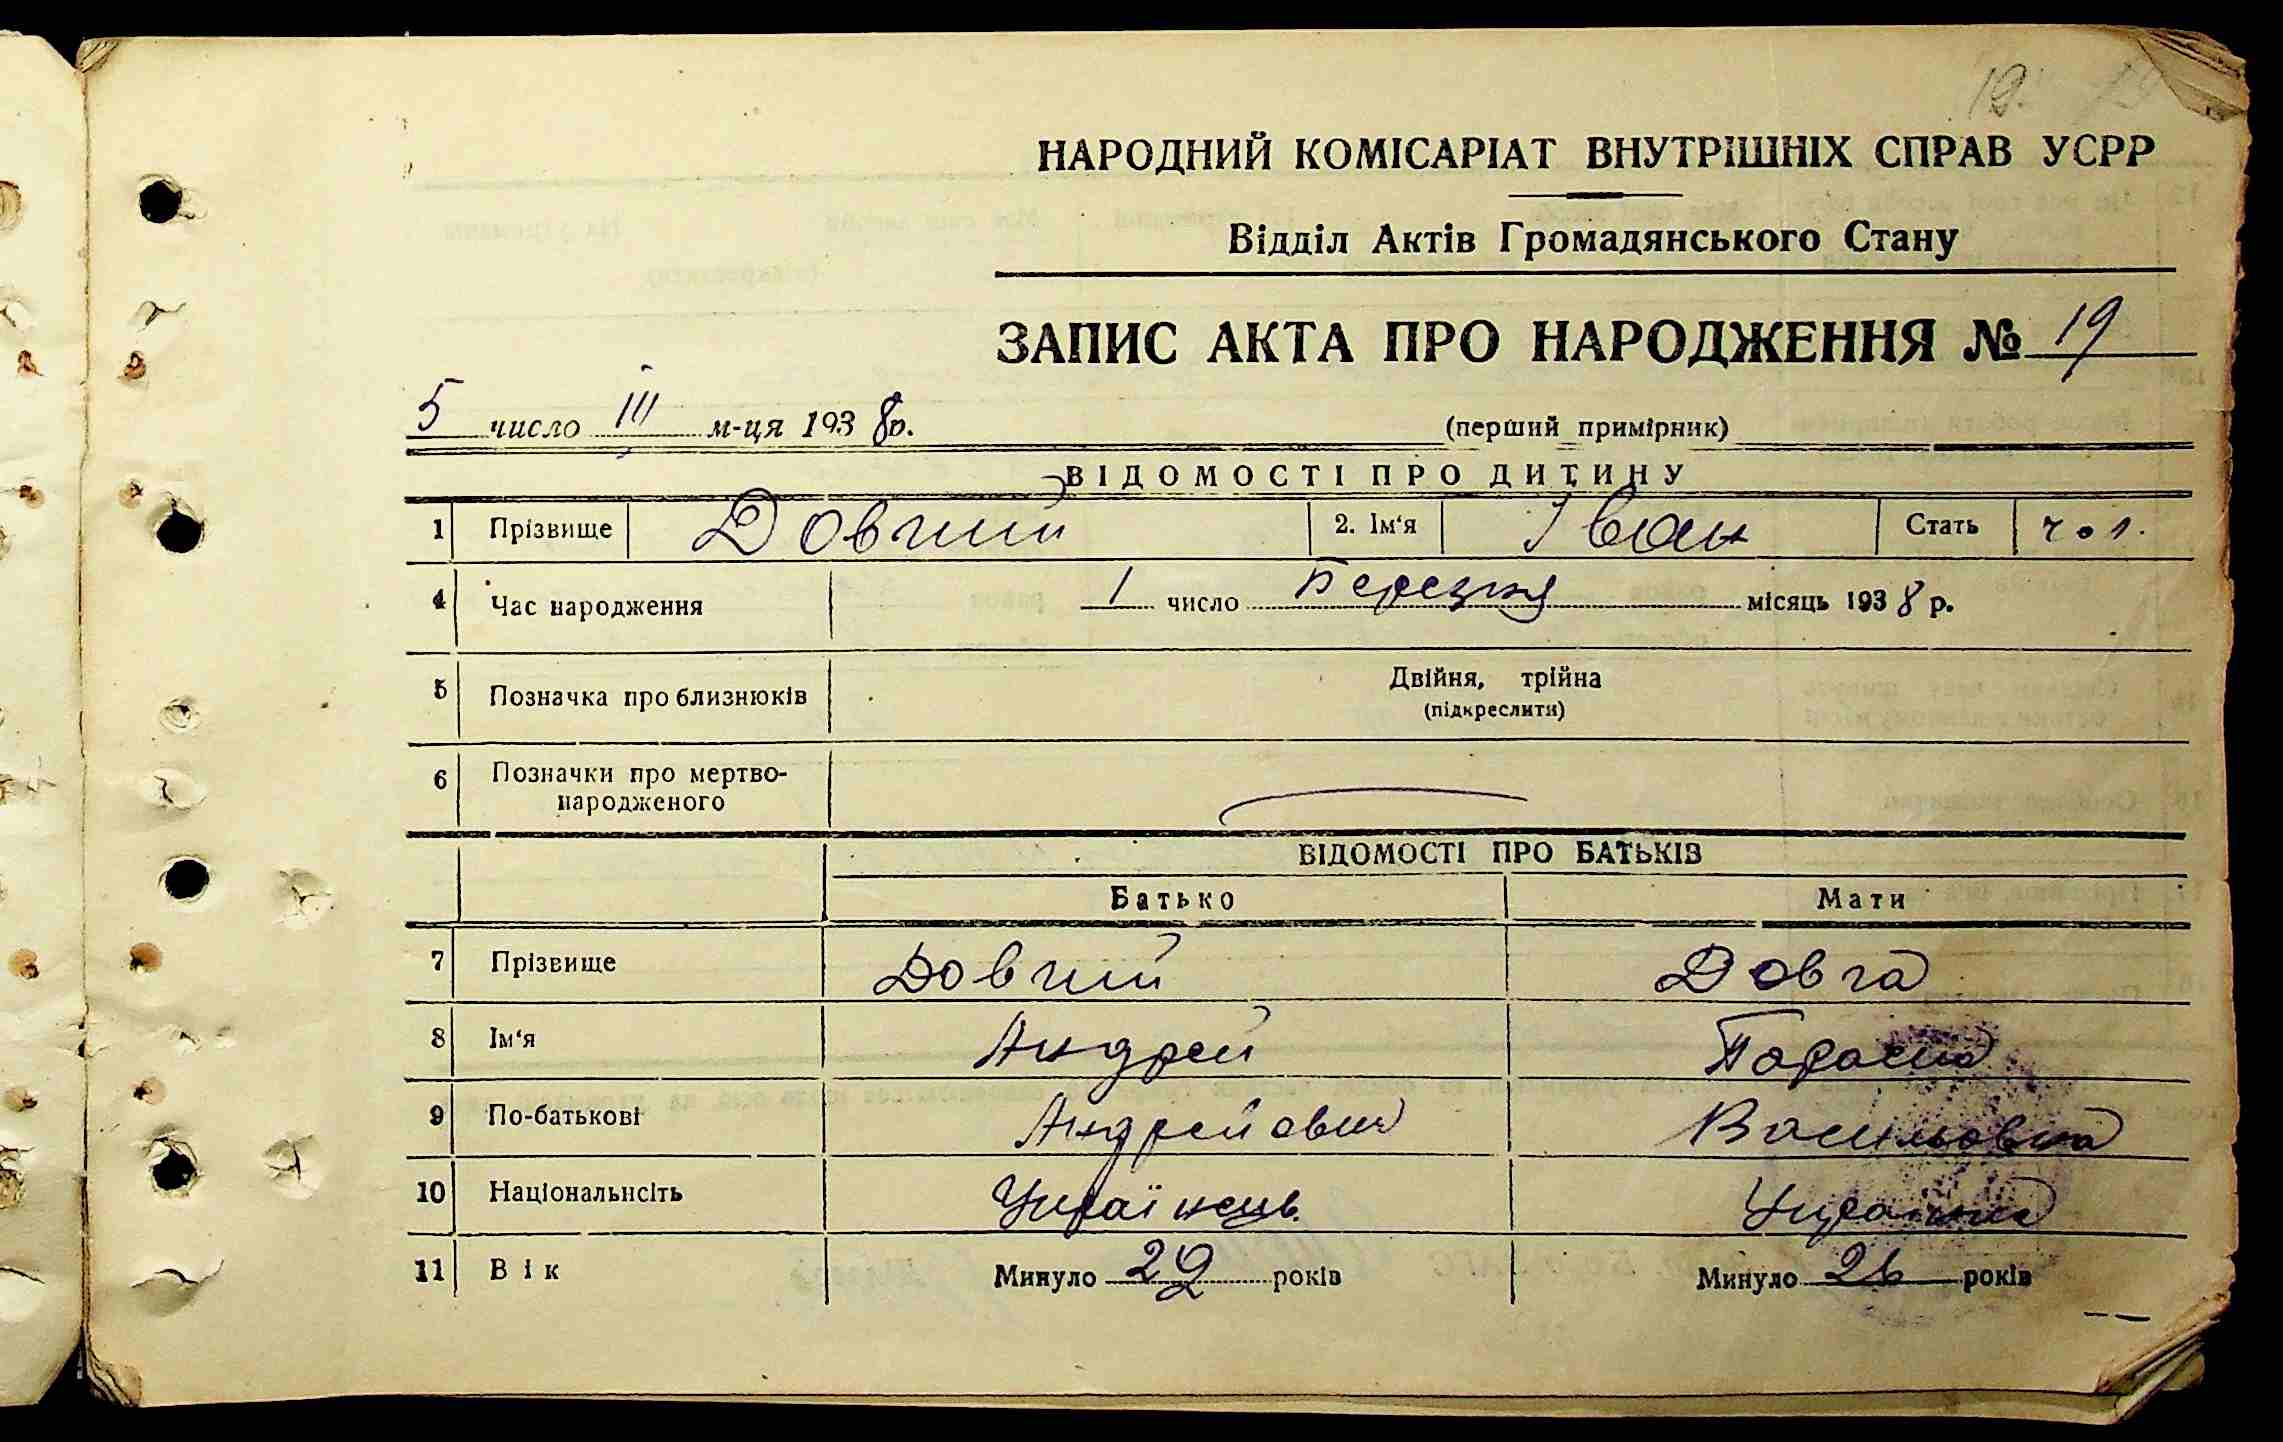 19.
НАРОДНИЙ КОМІСАРІАТ ВНУТРІШНІХ СПРАВ УСРР
Відділ Актів Громадянського Стану
ЗАПИС АКТА ПРО НАРОДЖЕННЯ № 19
5 число III м-ця 1938 р.
(перший примірник)
ВІДОМОСТІ ПРО ДИТИНУ
1 Прізвище Довгий 2. Ім'я Іван Стать чол.
4 Час народження 1 число Березня місяць 1938 р.
5 Позначка про близнюків Двійня, трійна
(підкреслити)
6 Позначки про мертво-
народженого
ВІДОМОСТІ ПРО БАТЬКІВ
Батько Мати
7 Прізвище Довгий Довга
8 Ім'я Андрей Параска
9 По-батькові Андрейович Васильовна
10 Національнсіть Українець Українка
11 Вік Минуло 29 років Минуло 26 років